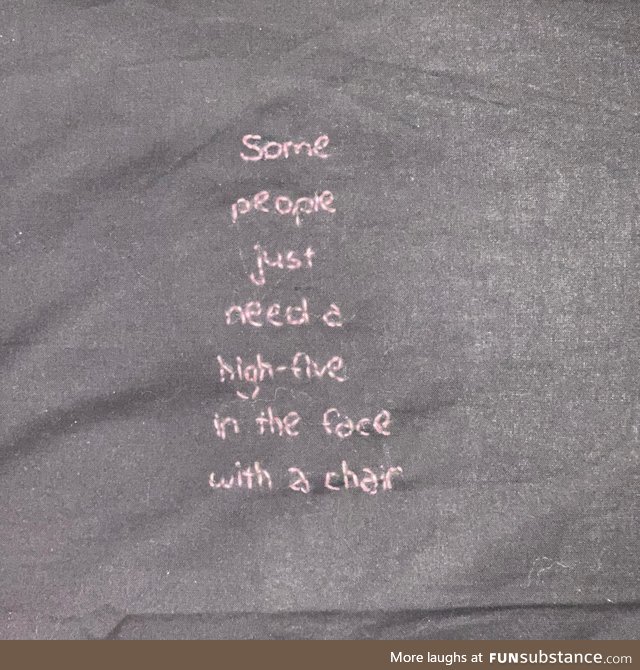 Some
people
just
need a
high-five
in the face
with a chair
More laughs at FUNsubstance.com